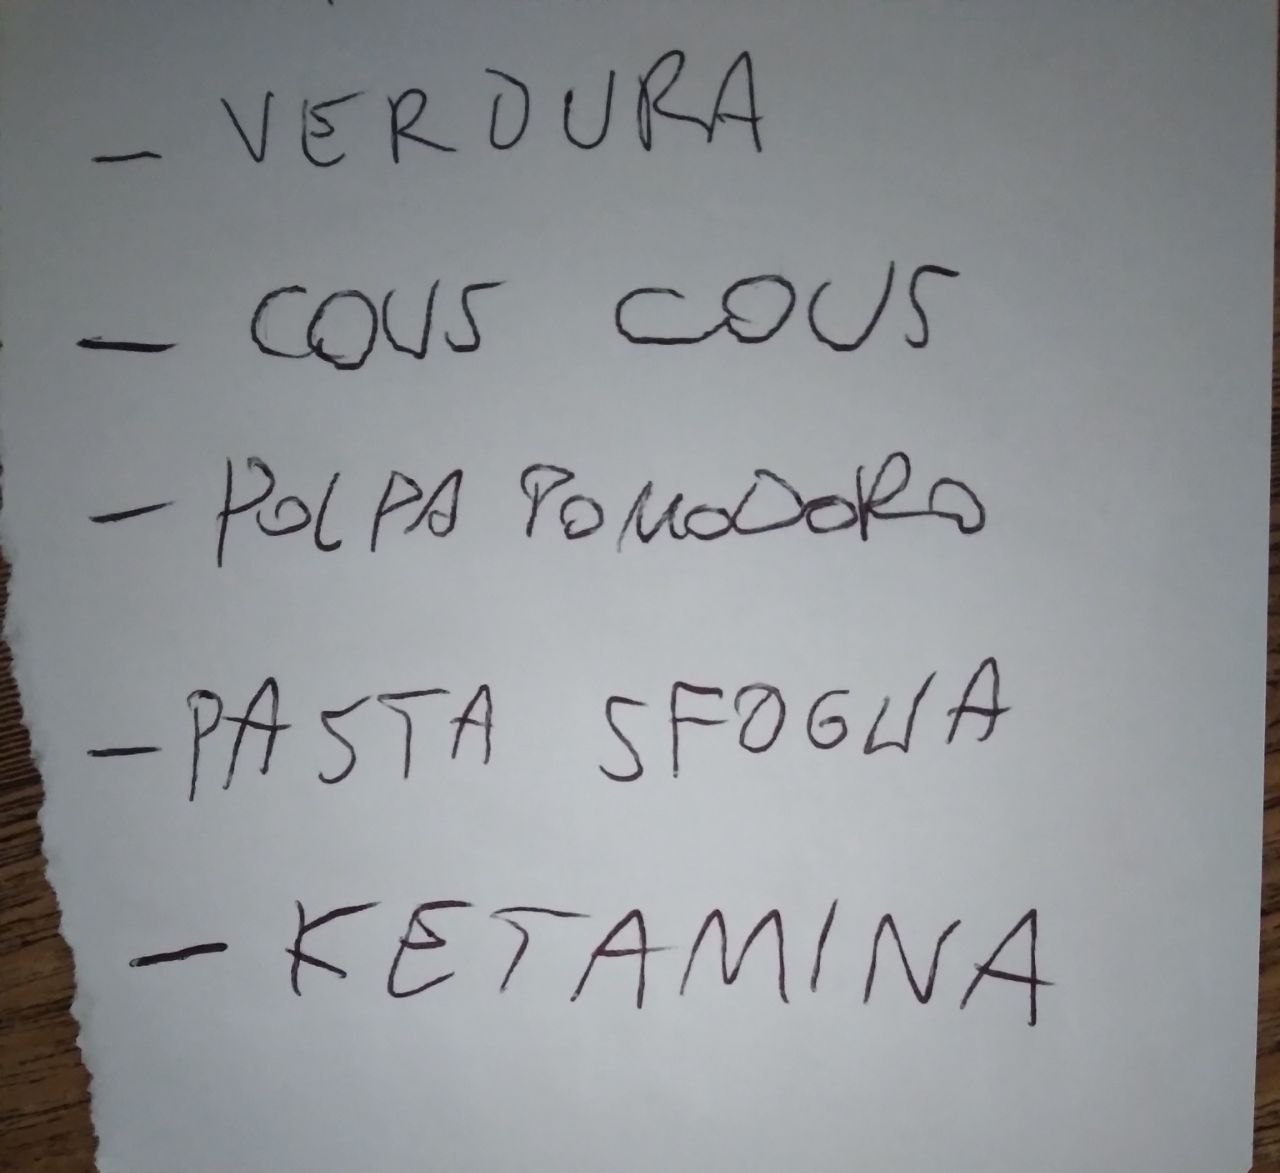 - VERDURA
- COUS COUS
- POLPA POMODORO
- PASTA SFOGLIA
- KETAMINA